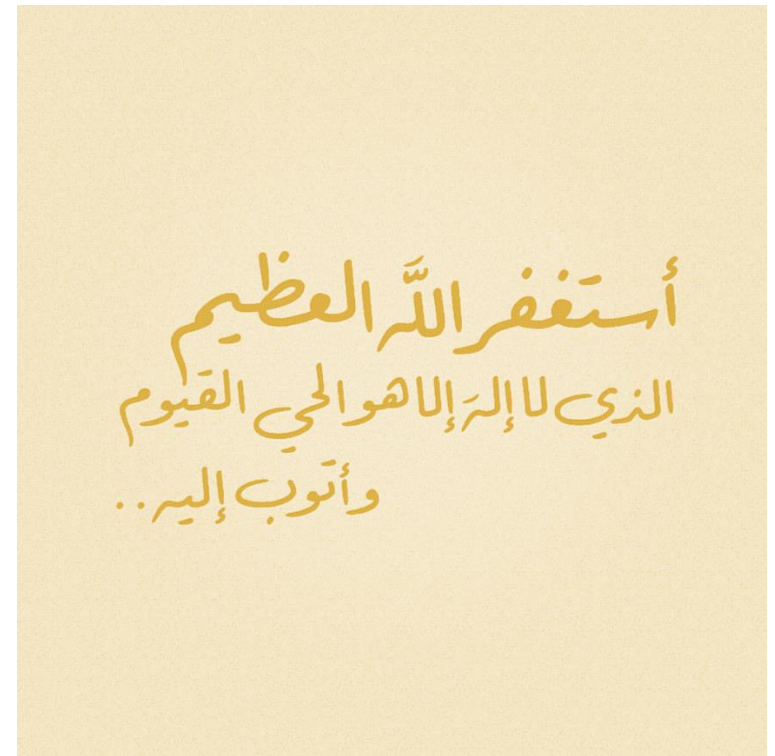 أستغفر اللَّه العظيم
الذي لا إلهَ إلا هو الحي القيوم
وأتوب إليه..